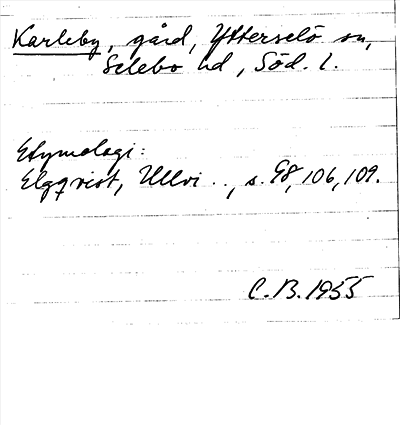 Karleby, gård, Ytterselö sn,
Selebo hd, Söd. l.
Etymologi:
Elgqvist, Ullvi .., s. 98, 106, 109.
C. B. 1955